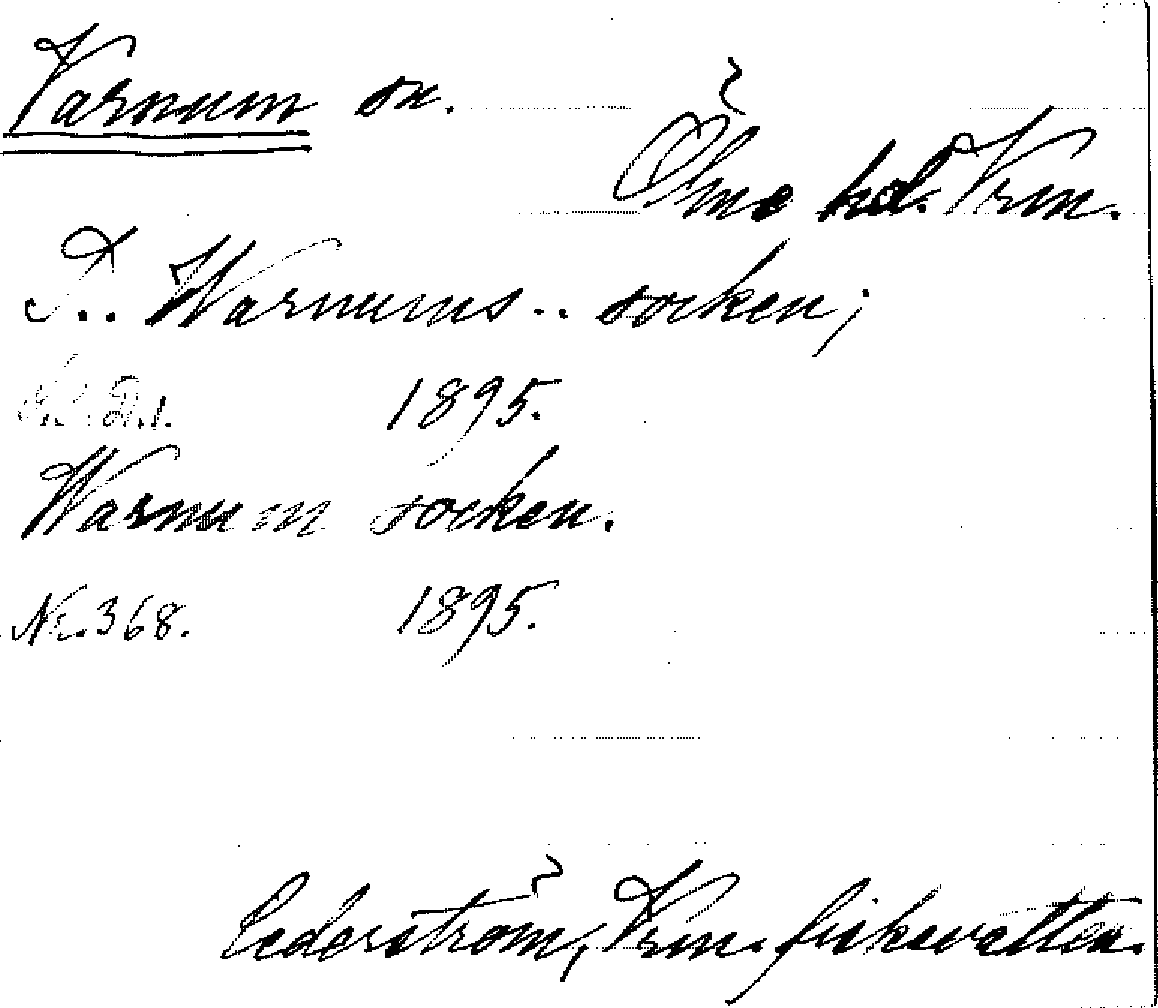 Varnum sn.
Ölme hd. Vrm.
I.. Warnums.. socken;
1895.
Warnum socken.
Nr. 368. 1895.
Cederström, Vrm. fiskevatten.